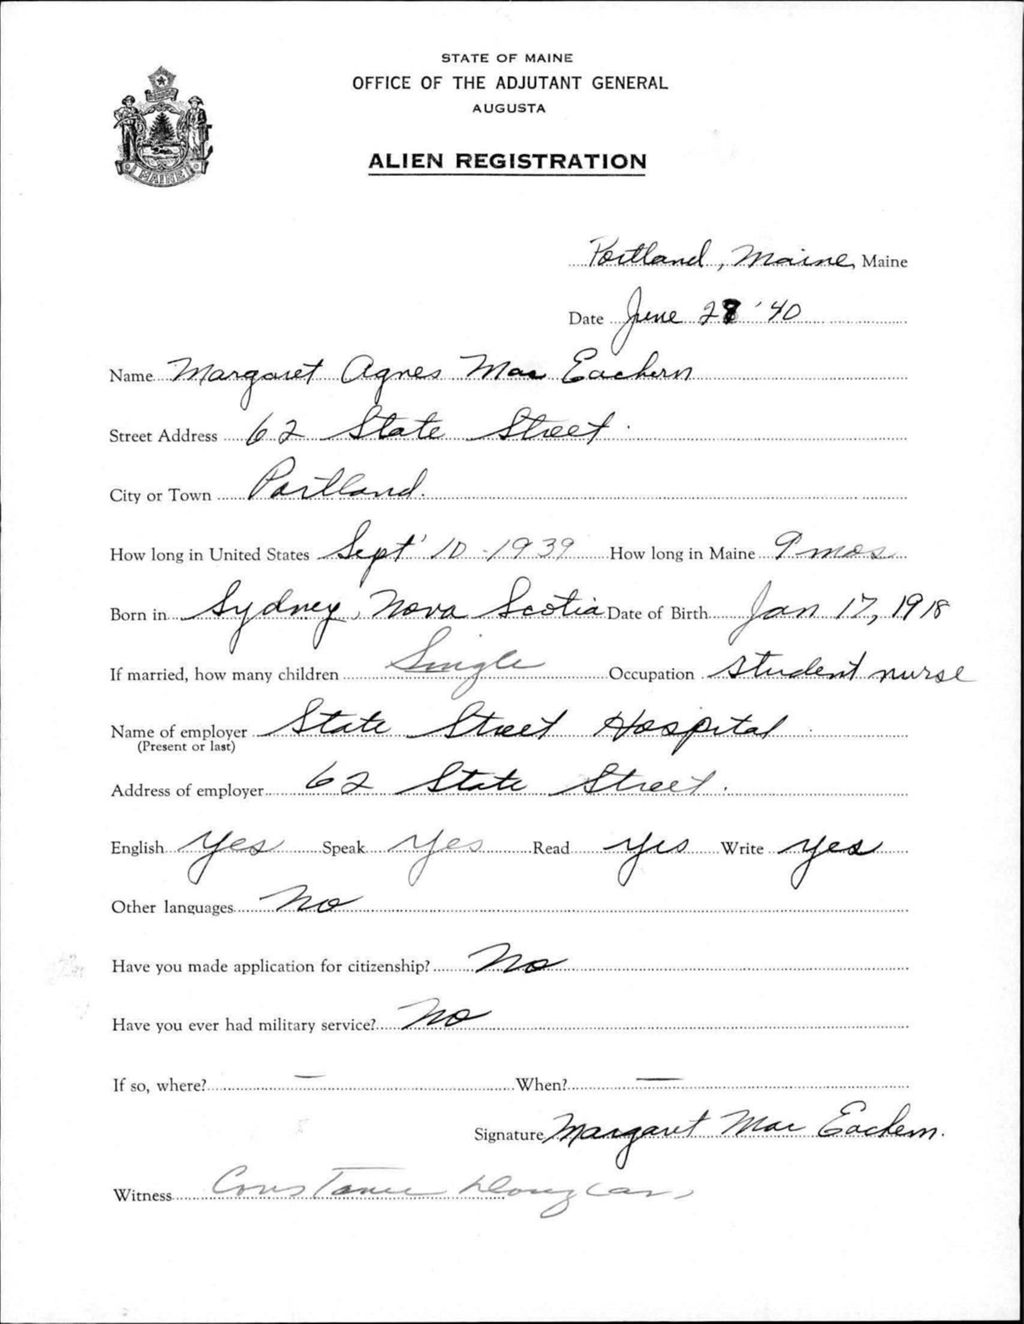 STATE OF MAINE
OFFICE OF THE ADJUTANT GENERAL
AUGUSTA
ALIEN REGISTRATION
MAINE
Portland, Maine, Maine
Date June 28 '40
Name Margaret Agnes Mac Eachern
Street Address 62 State Street.
City or Town Portland.
How long in United States Sept' 10 - 1939 How long in Maine 9 mos
Born in Sydney, Nova Scotia Date of Birth Jan 17, 1918
If married, how many children Single Occupation student nurse
Name of employer State Street Hospital
(Present or last)
Address of employer 62 State Street.
English Yes Speak Yes Read yes Write yes
Other languages No
Have you made application for citizenship? No
Have you ever had military service? No
If so, where? — When? —
Signature Margaret Mac Eachern.
Witness Constance Douglas